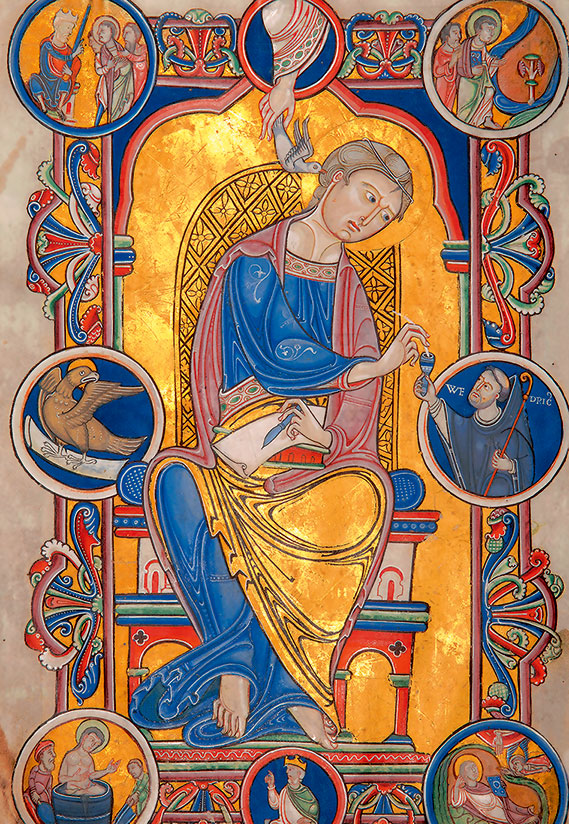 WE
DRICꝰ